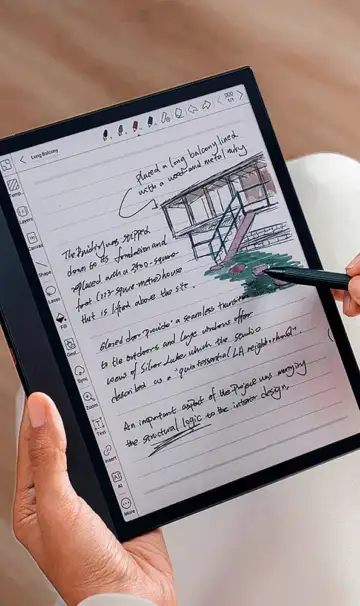 Long Balcony
Temp.
Layers
Canvas
Shape
Lasso
Fill
Sync
Zoom
Text
Insert
AI
More
placed a long balcony lined
with a wood and metal
The was stripped
down to its foundation and
replaced with a 2100-square-
foot square-metre) house
that is lifted above the site.
glazed door provide a seamless
to the outdoors and large windows offer
views of Silver Lake which the studio
described as a "quintessential LA neighborhood".
An important aspect of the Project was marrying
the structural logic to the interior design.